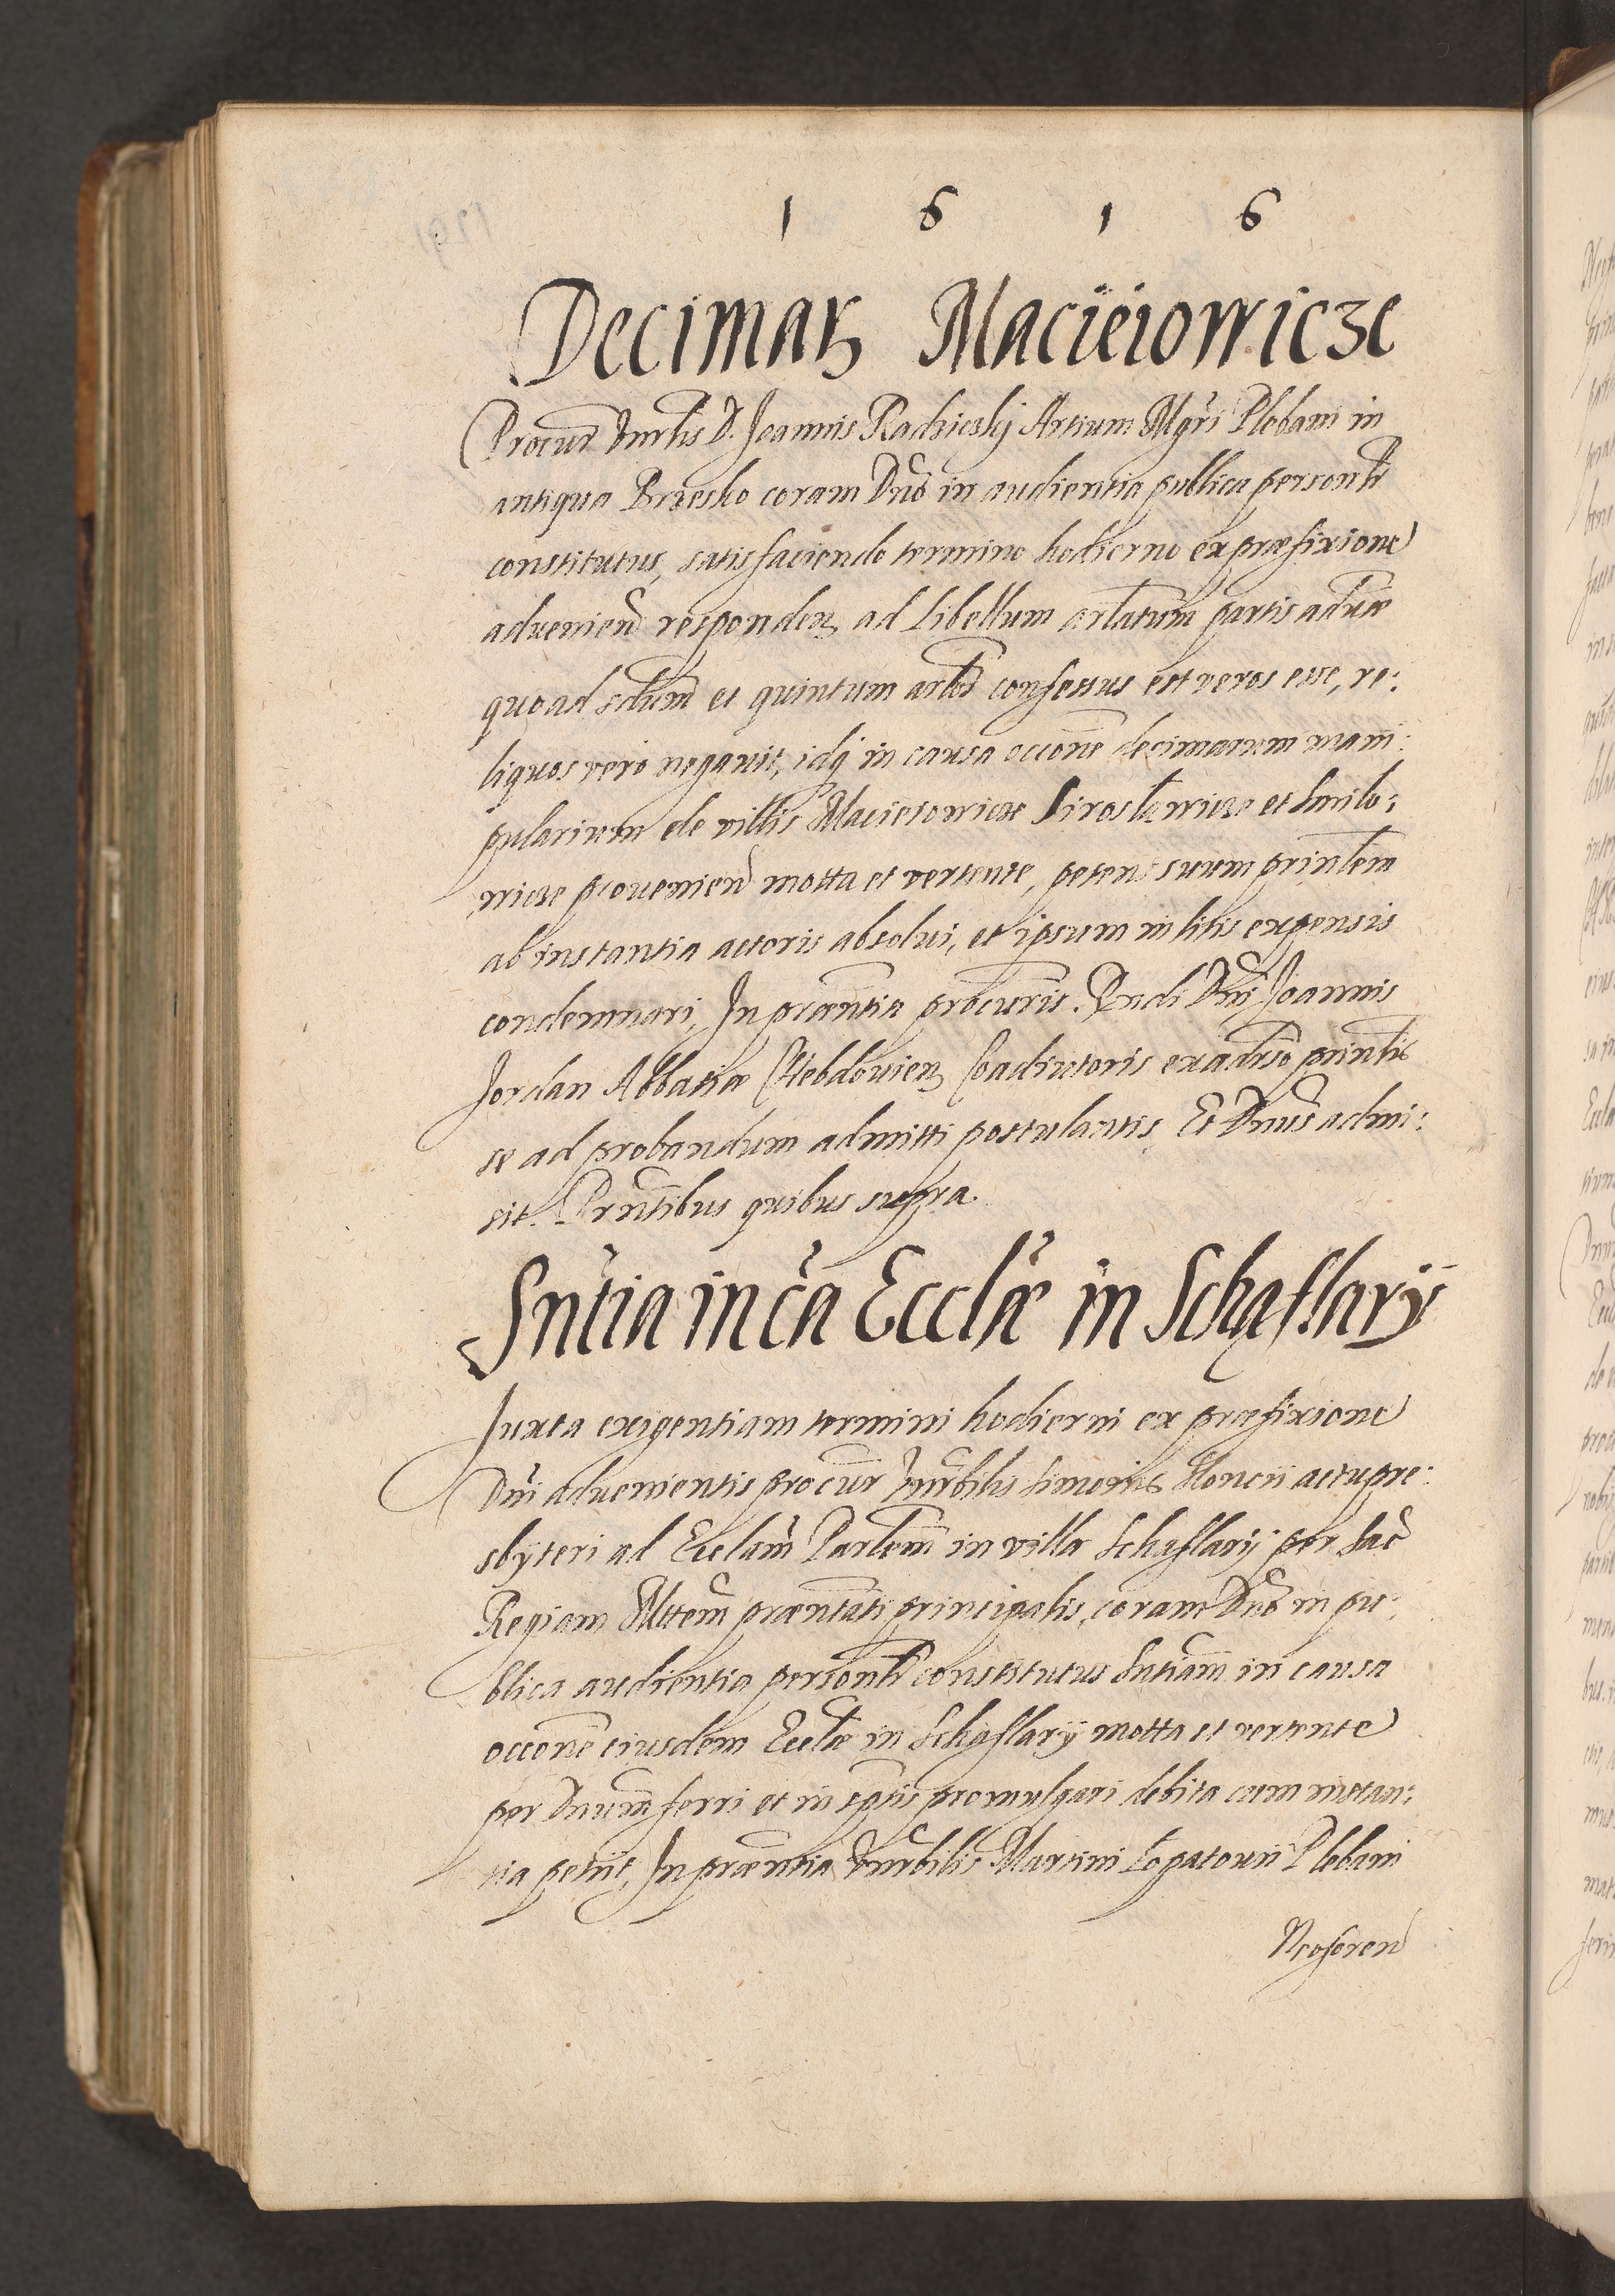 1 6 1 6
Decimarꝝ Macieiowicze
Procur Vnrlis D. Joannis Rachieskij Artium Mgri Plebani in
antiqua Brzesko coram Dno in audientia publica personlr
constitutus, satisfaciendo termino hodierno ex præfixione
aduenien responden ad Libellum arlatum partis aduræ
quoad scdum et quintum arlos confessus est veros esse, re:
liquos vero negauit, idq in causa occone decimarum mani:
pularium de villis Macieiowicze Siroslawicze et Smilo:
wicze prouenien motta et vertente, petens suum prinlem
ab instantia actoris absolui, et ipsum in litis expensis
condemnari, In præntia procuris Rndi Dni Joannis
Jordan Abbatiæ Hebdouien Coadiutoris ex aduso prinlis
se ad probandum admitti postulantis Et Dnus admi:
sit. Prntibus quibus supra.
Sntia in ca Ecclæ in Schaflary
Juxta exigentiam termini hodierni ex præfixione
Dni aduenientis procur Vnrbilis Simonis Moncii actu pre:
sbyteri ad Ecclam Parlem in villa Schaflarij per Sac
Regiam Mttem præntati principalis, coram Dno in pu:
blica audientia personlr constitutus Sntiam in causa
occone eiusdem Ecclæ in Schaflarij motta et vertente
per Dnum ferri et in sptis promulgari debita cum instan:
tia petiit, In præntia Vnrbilis Martini Lopatouii Plebani
Neoforen